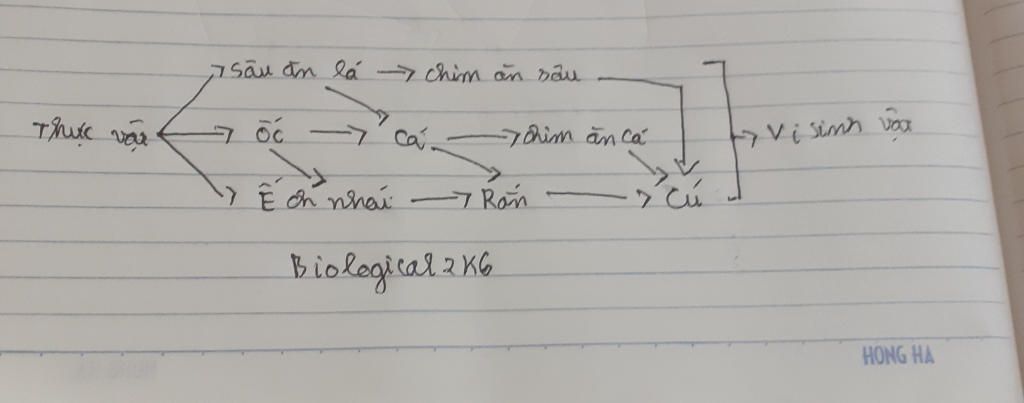 Sâu ăn lá → chim ăn sâu
Thực vật → Ốc → Cá → chim ăn cá → Vi sinh vật
Ếch nhái → Rắn → Cú
Biological 2K6
HONG HA